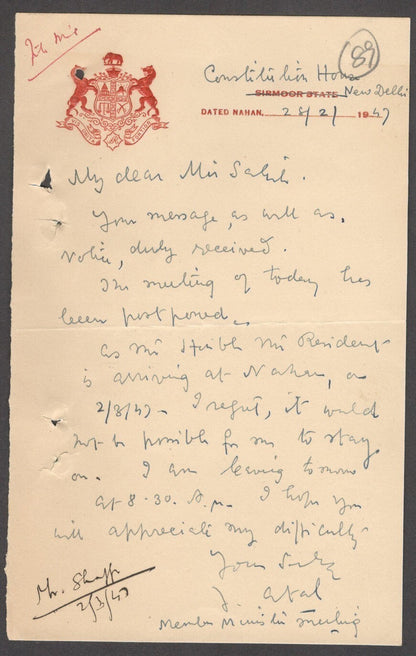 89
Constitution House
SIRMOOR STATE New Delhi
DATED NAHAN, 28/2/ 1947
My dear Mir Sahib.
Your message, as well as
notice, duly received.
The meeting of today has
been postponed.
As the Hon'ble the Resident
is arriving at Nahan, on
2/3/47 - I regret, it would
not be possible for me to stay
on. I am leaving tomorrow
at 8-30. A.M. I hope you
will appreciate my difficulty
Yours Sincerely
J. Atal
Member Ministers meeting
Mr. Shaffi
2/3/47